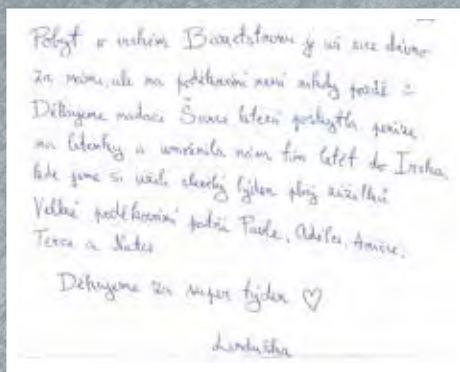 Pobyt v irském Barretstownu je už sice dávno
za námi, ale na poděkování není nikdy pozdě :-)
Děkujeme nadaci Šance která poskytla peníze
na letenky a umožnila nám tím letět do Irska,
kde jsme si užili skvělý týden plný zážitků
Velké poděkování patří Pavle, Adélce, Amice,
Terce a Natce
Děkujeme za super týden ♡
Linduška